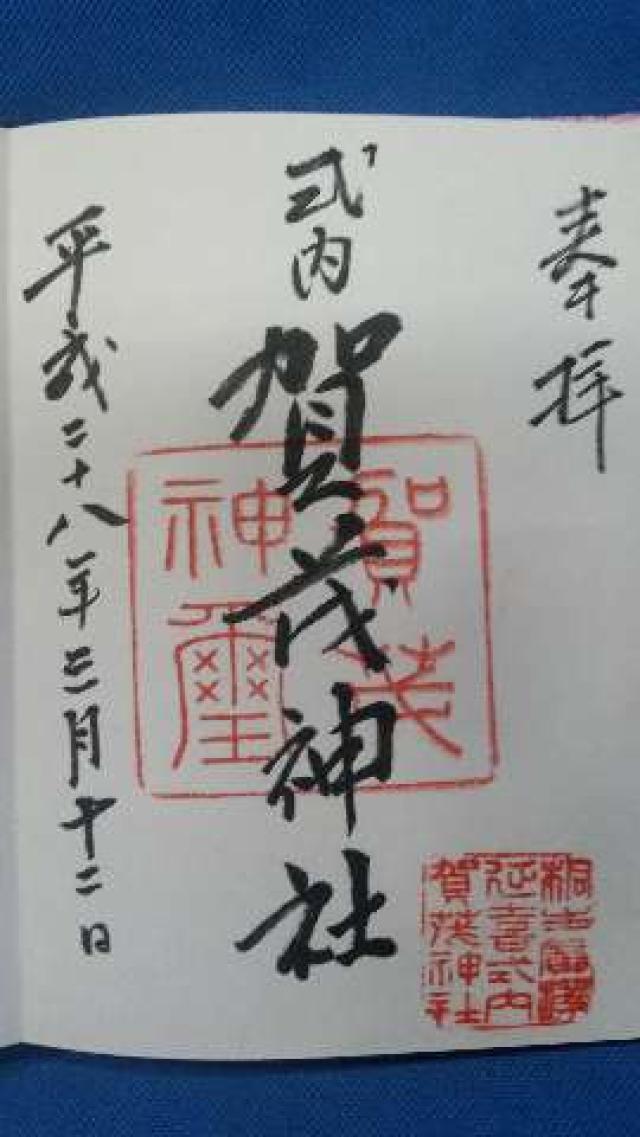 奉拝
式内
賀茂神社
賀茂
神璽
桐生廣澤
延喜式内
賀茂神社
平成二十八年三月十二日